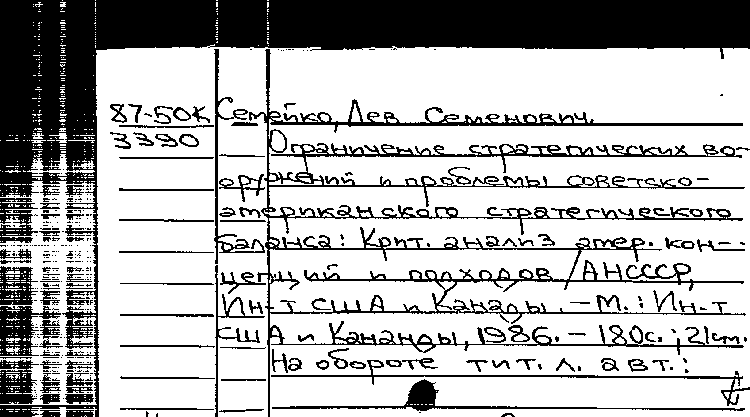 87-50К Семейко, Лев Семенович.
3390 Ограничение стратегических во-
оружений и проблемы советско-
американского стратегического
баланса: Крит. анализ амер. кон-
цепций и подходов / АНСССР,
Ин-т США и Канады. - М.: Ин-т
США и Кананды, 1986. - 180с.; 21см.
На обороте тит. л. авт.: